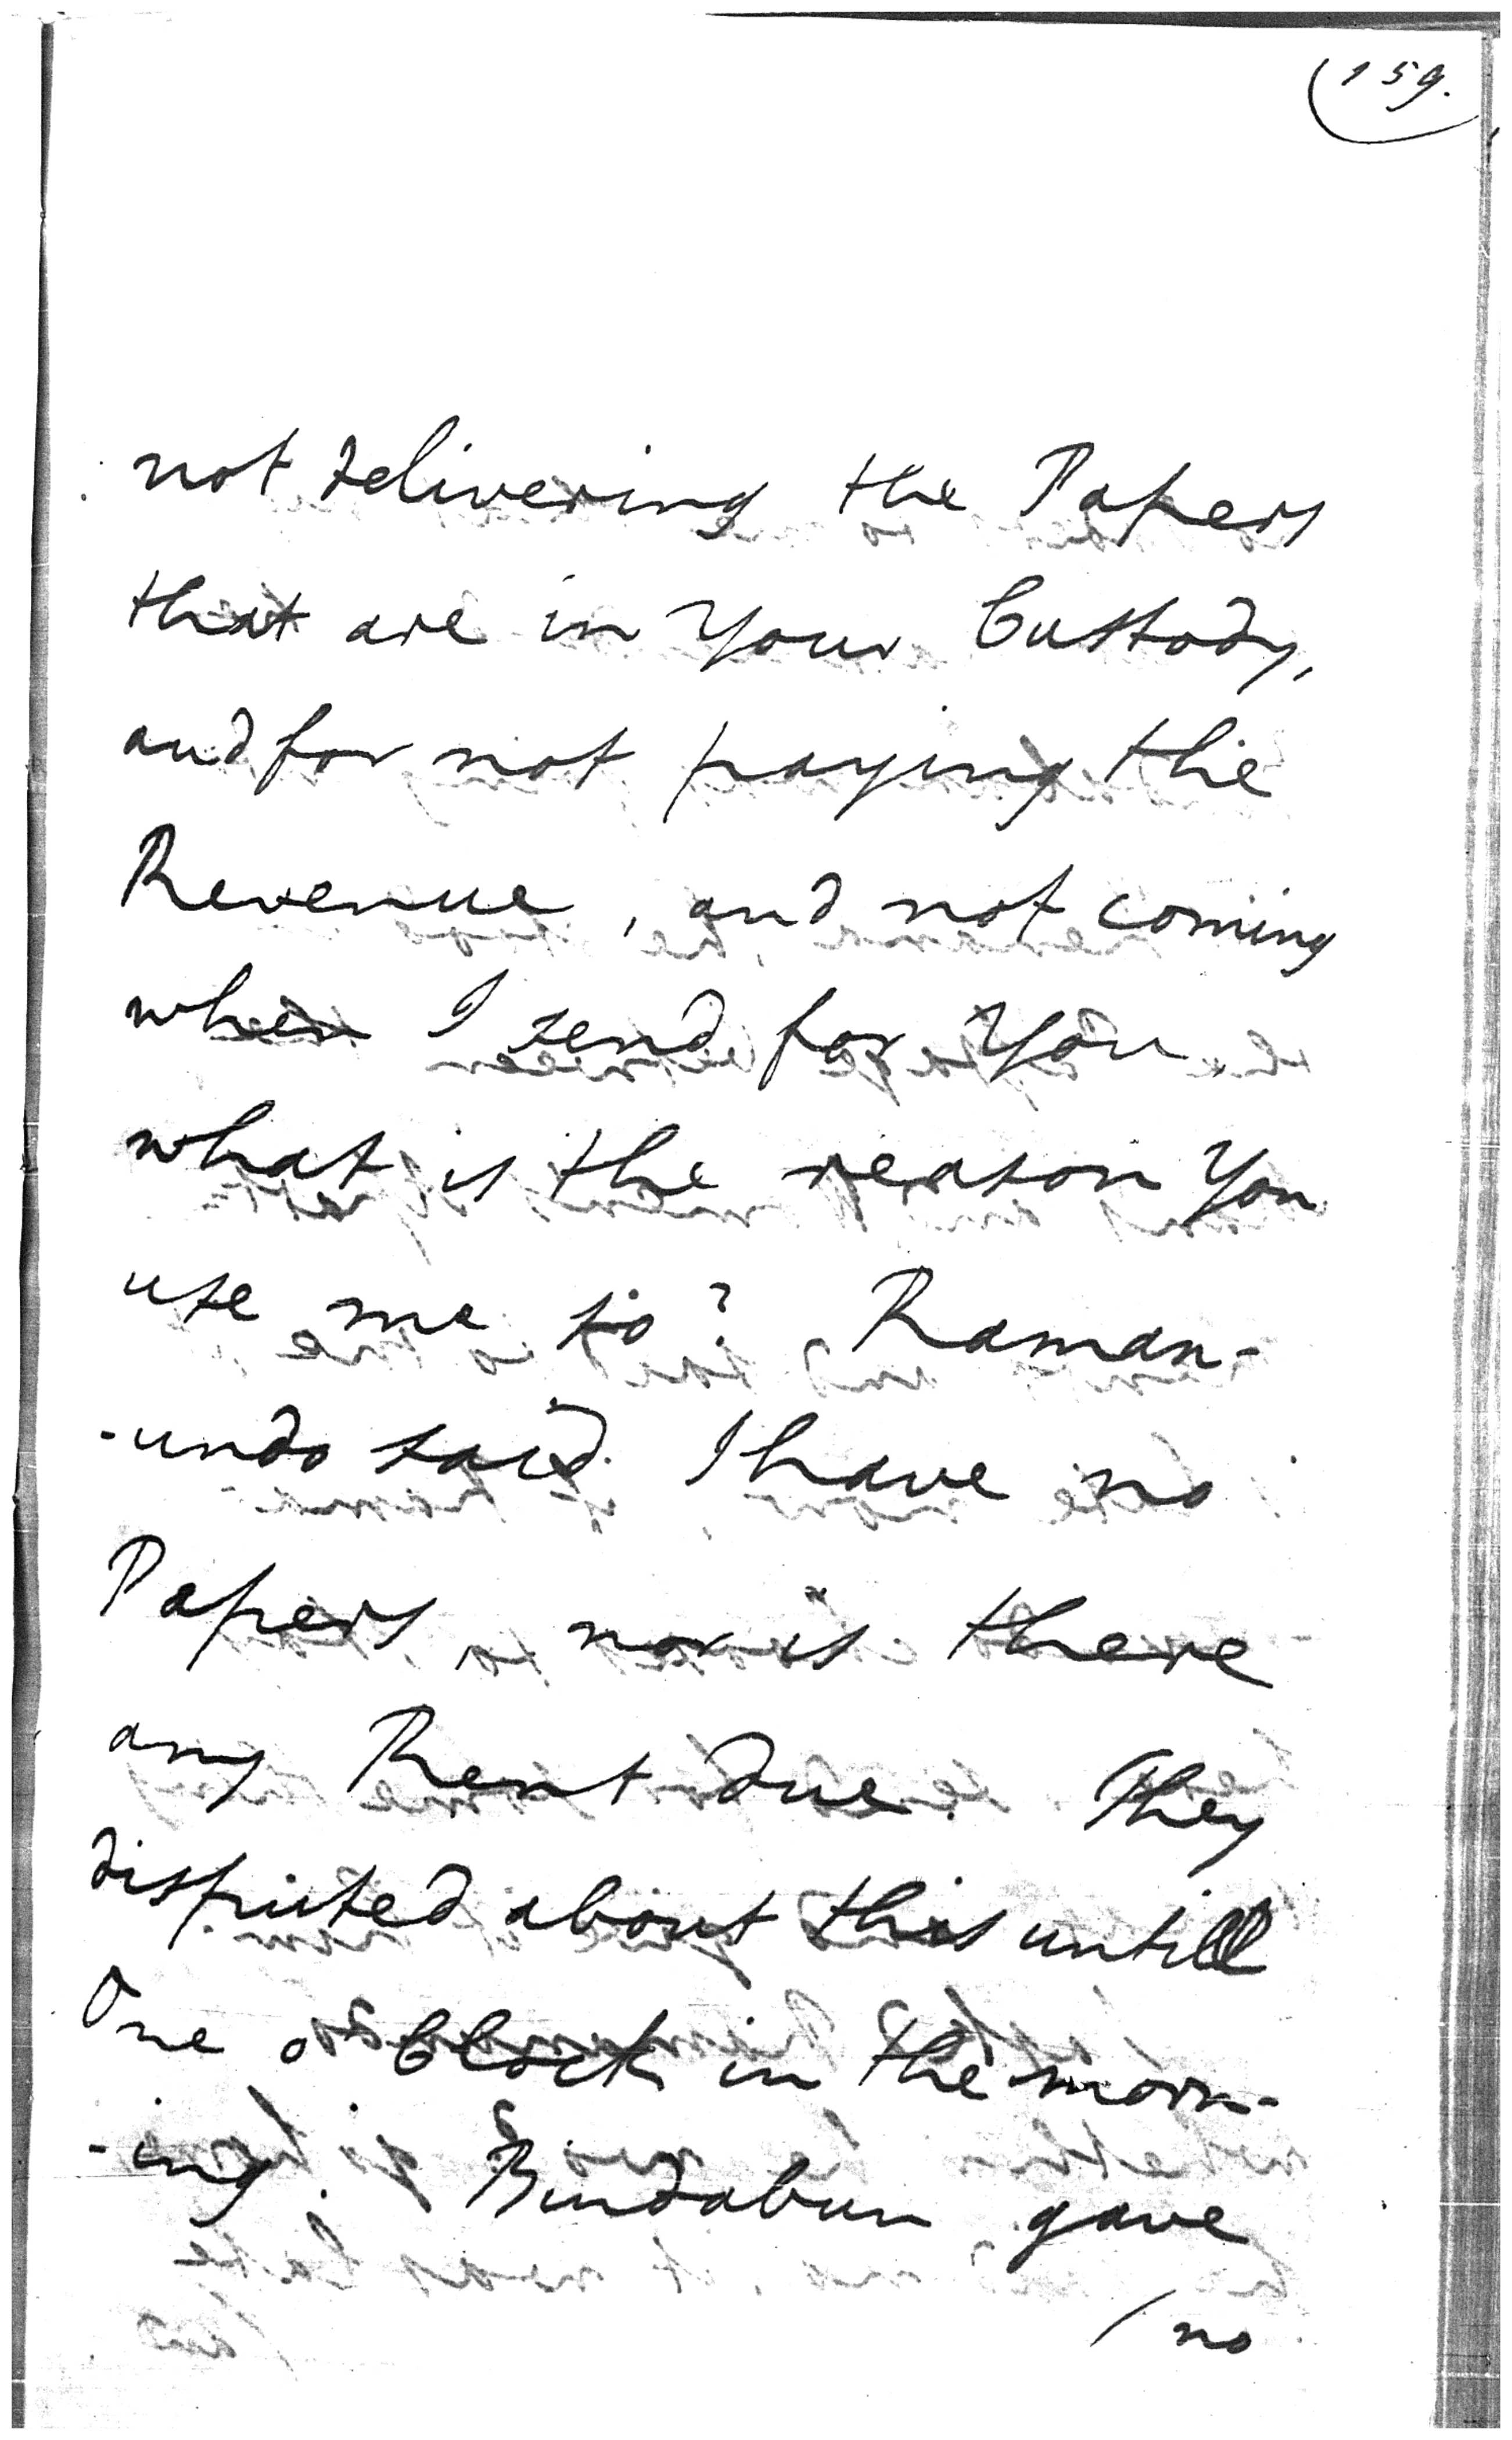 159.
not delivering the Papers
that are in Your Custody,
and for not paying the
Revenue, and not coming
when I send for You,
what is the reason You
use me so? Raman-
-undo said I have no
Papers, nor is there
any Rent due. They
disputed about this untill
One o Clock in the morn-
-ing. Bindabun gave
/no